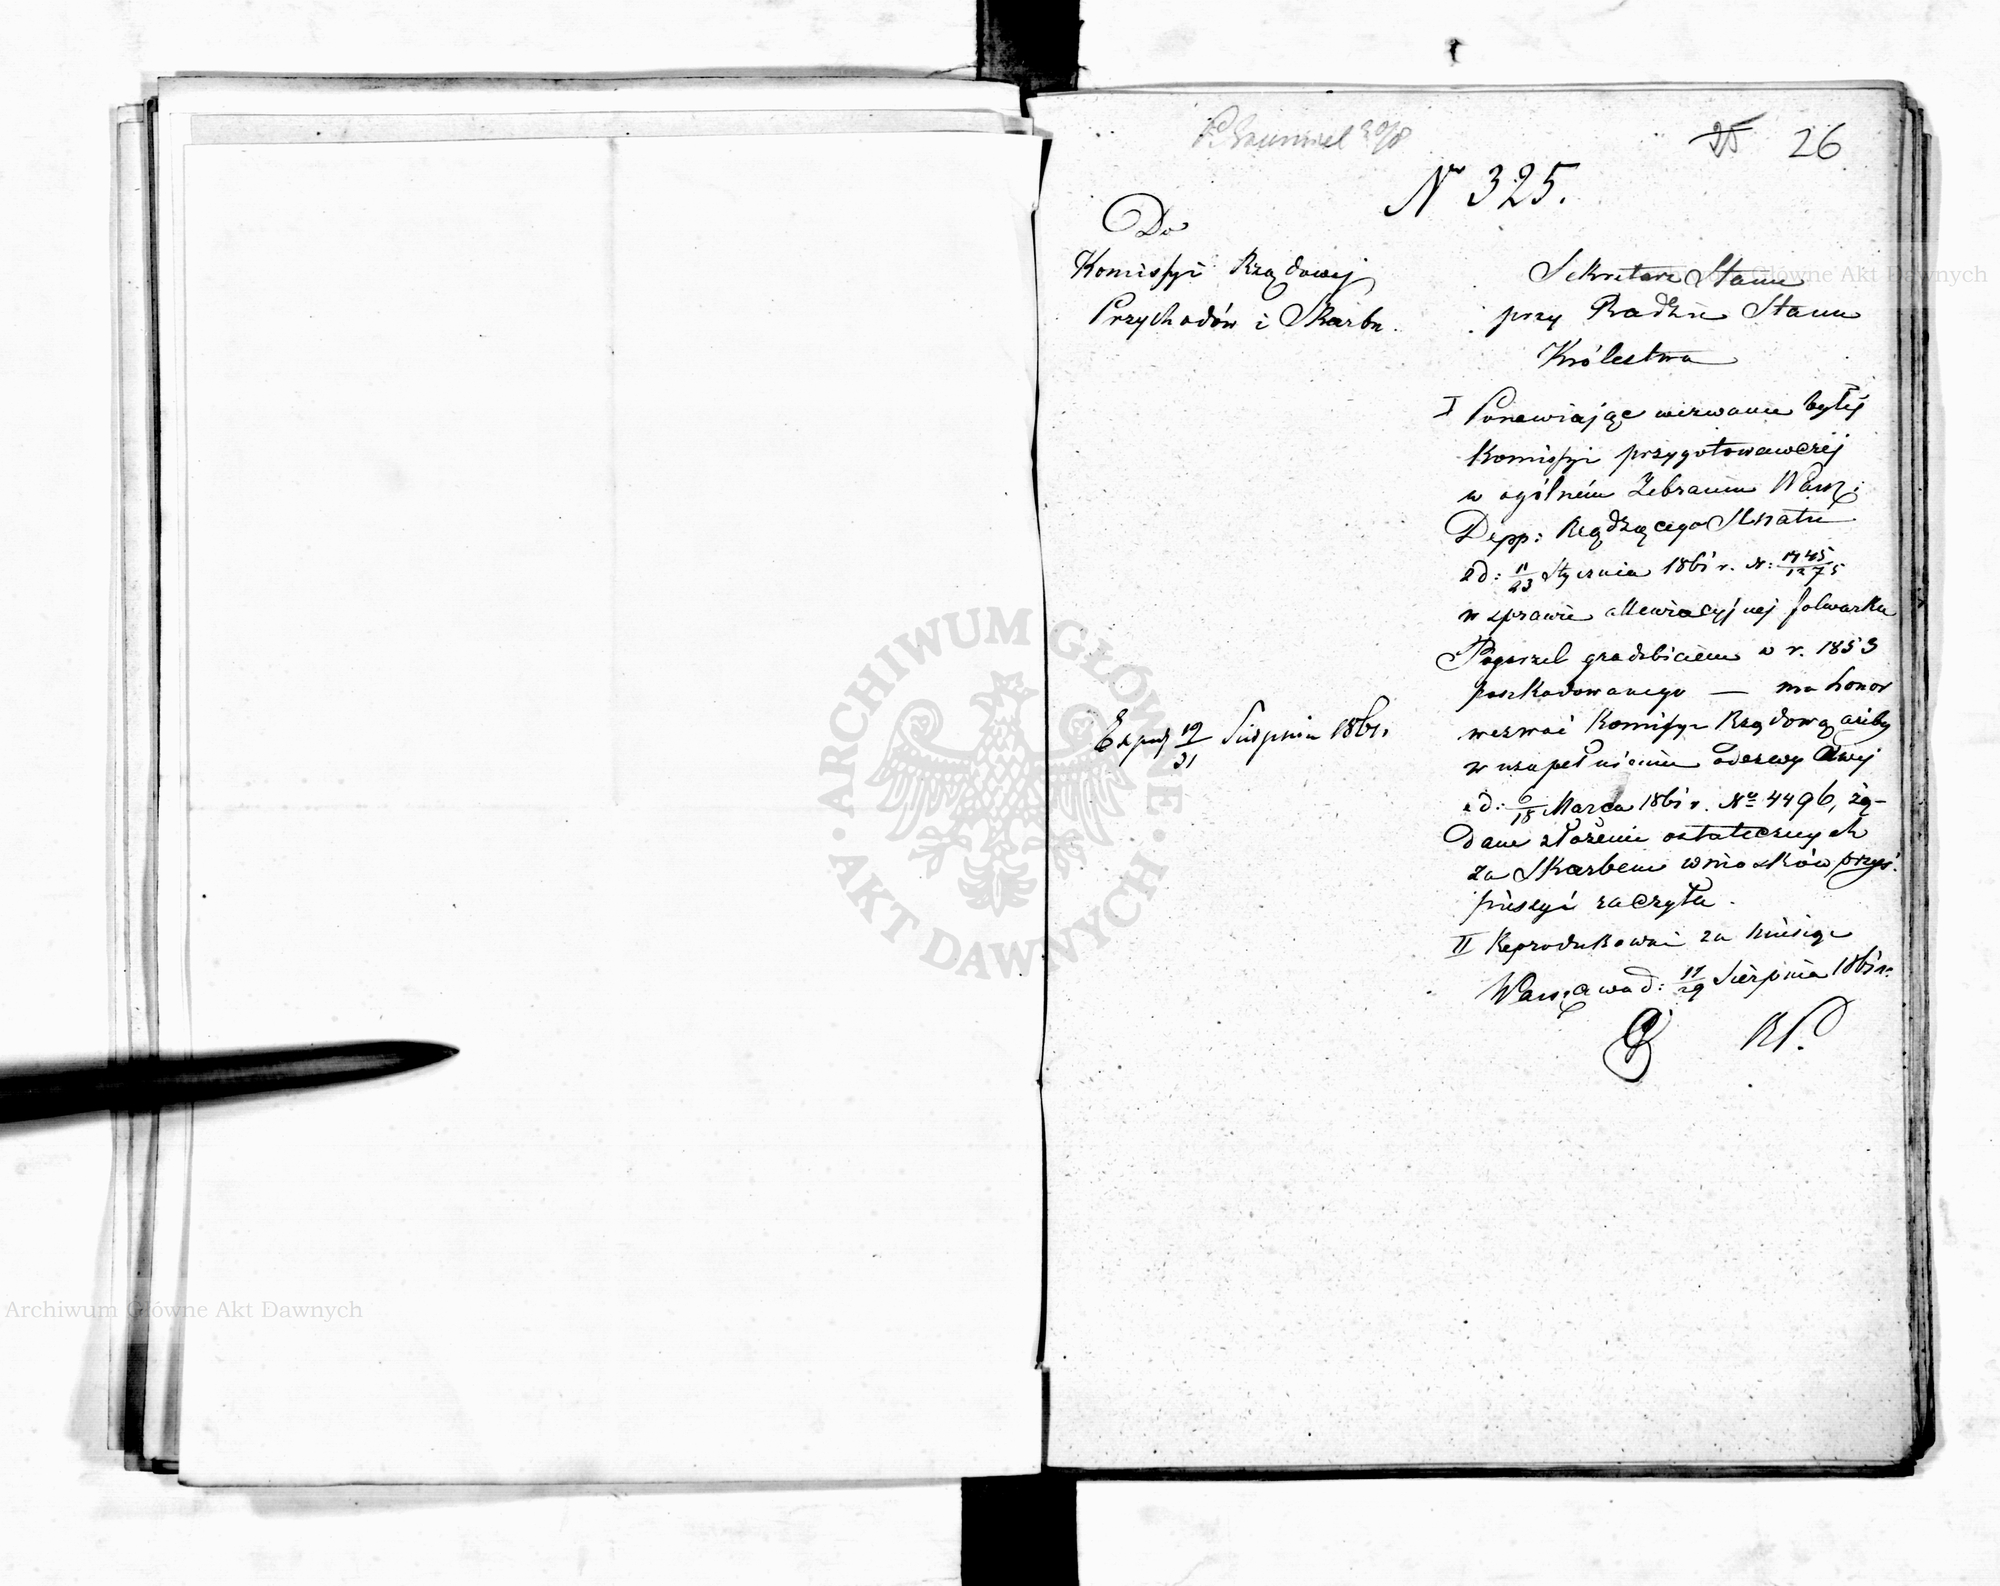 25 26
Nr 325.
Do
Komissyi Rządowej
Przychodów i Skarbu.
Sekretarz Stanu
przy Radzie Stanu
Królestwa
I Ponawiając wezwanie byłej
Komissyi przygotowawczej
w ogólném Zebraniu Warsz:
Depp: Rządzącego Senatu
z d: 11/23 Stycznia 1861 r. N: 1745/1275
w sprawie allewiacyjnej folwarku
Pogorzel gradobiciem w r. 1853
poszkodowanego — ma honor
wezwać Komissyę Rządową ażeby
w uzupełnieniu odezwy swej
z d: 6/18 Marca 1861 r. Nr 4496, żą-
dane złożenie ostatecznych
za Skarbem wniosków przys-
pieszyć raczyła.
II Reprodukować za miesiąc
Warszawa d: 17/29 Sierpnia 1861 r.
Exped 19/31 Sierpnia 1861 r.
ARCHIWUM GŁÓWNE AKT DAWNYCH
Archiwum Główne Akt Dawnych
Archiwum Główne Akt Dawnych